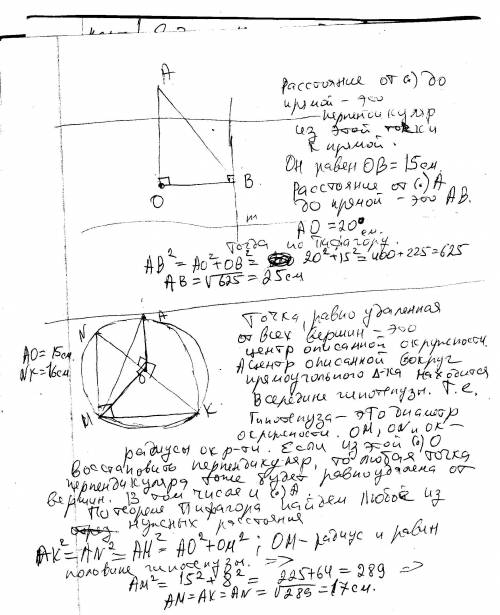 A
Расстояние от (.) до
прямой - это
перпендикуляр
из этой точки
к прямой.
Он равен OB = 15см.
B
O
Расстояние от (.) A
до прямой - это AB.
m
AO = 20 см.
Тогда по Пифагору.
AB² = AO² + OB² = 20² + 15² = 400 + 225 = 625
AB = √625 = 25см
A
Точка, равно удаленная
N
от всех вершин - это
центр описанной окружности.
AO = 15см.
NK = 16см.
А центр описанной вокруг
O
прямоугольного Δ-ка находится
в середине гипотенузы. Т.е,
M
K
Гипотенуза - это диаметр
окружности. OM, ON и OK -
радиусы окр-ти. Если из этой (.) O
восстановить перпендикуляр, то любая точка
перпендикуляра тоже будет равноудалена от
вершин. В том числе и (.) A.
По теореме Пифагора найдем любое из
нужных расстояния
AK² = AN² = AM² = AO² + OM²; OM - радиус и равен
половине гипотенузы. =>
AM² = 15² + 8² = 225 + 64 = 289 =>
AM = AK = AN = √289 = 17см.